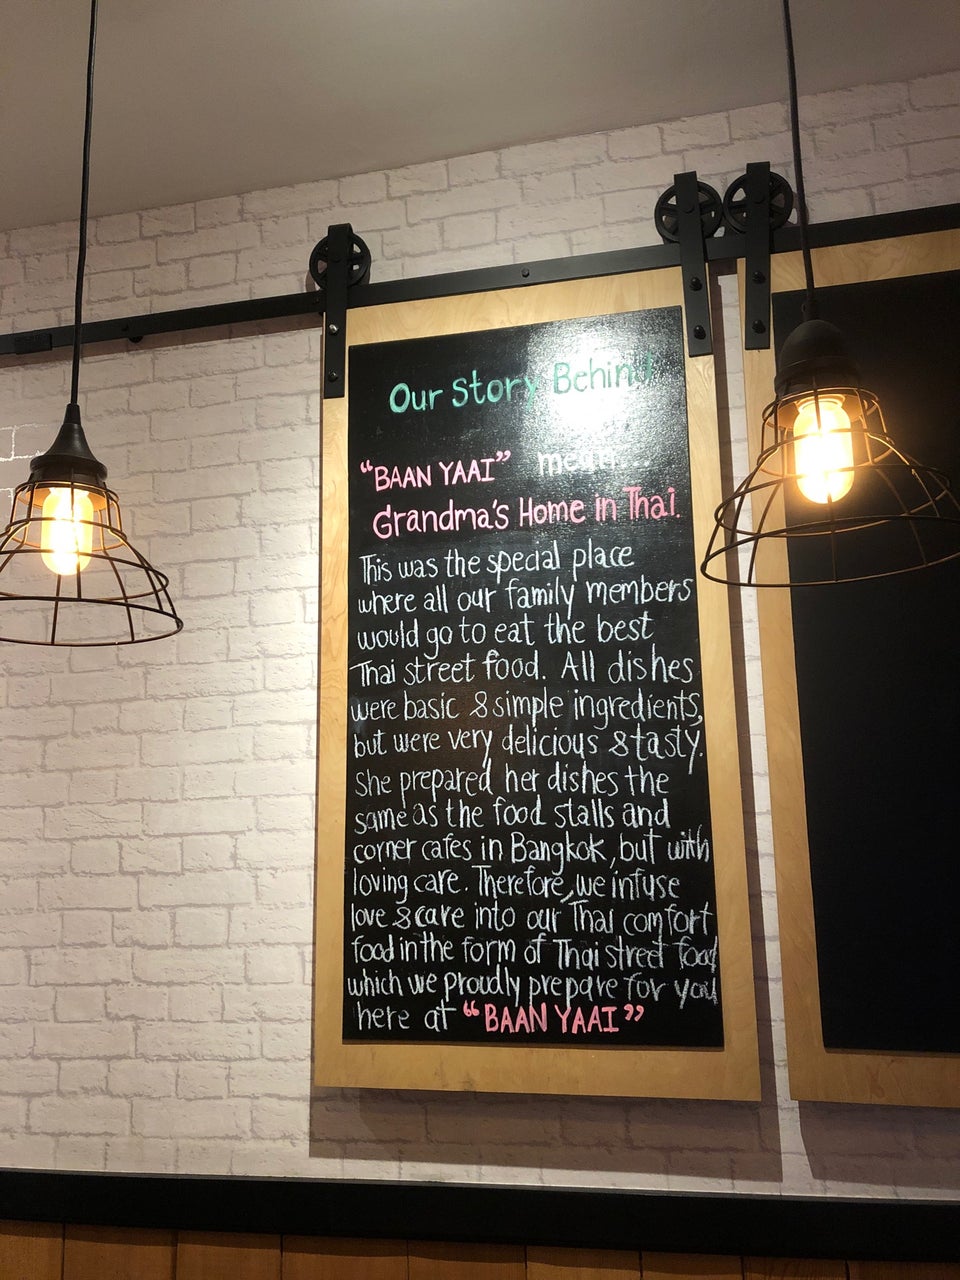 Our Story Behind
"BAAN YAAI" mean...
Grandma's Home in Thai.
This was the special place
where all our family members
would go to eat the best
Thai street food. All dishes
were basic & simple ingredients,
but were very delicious & tasty.
She prepared her dishes the
same as the food stalls and
corner cafes in Bangkok, but with
loving care. Therefore, we infuse
love & care into our Thai comfort
food in the form of Thai street food
which we proudly prepare for you
here at "BAAN YAAI"